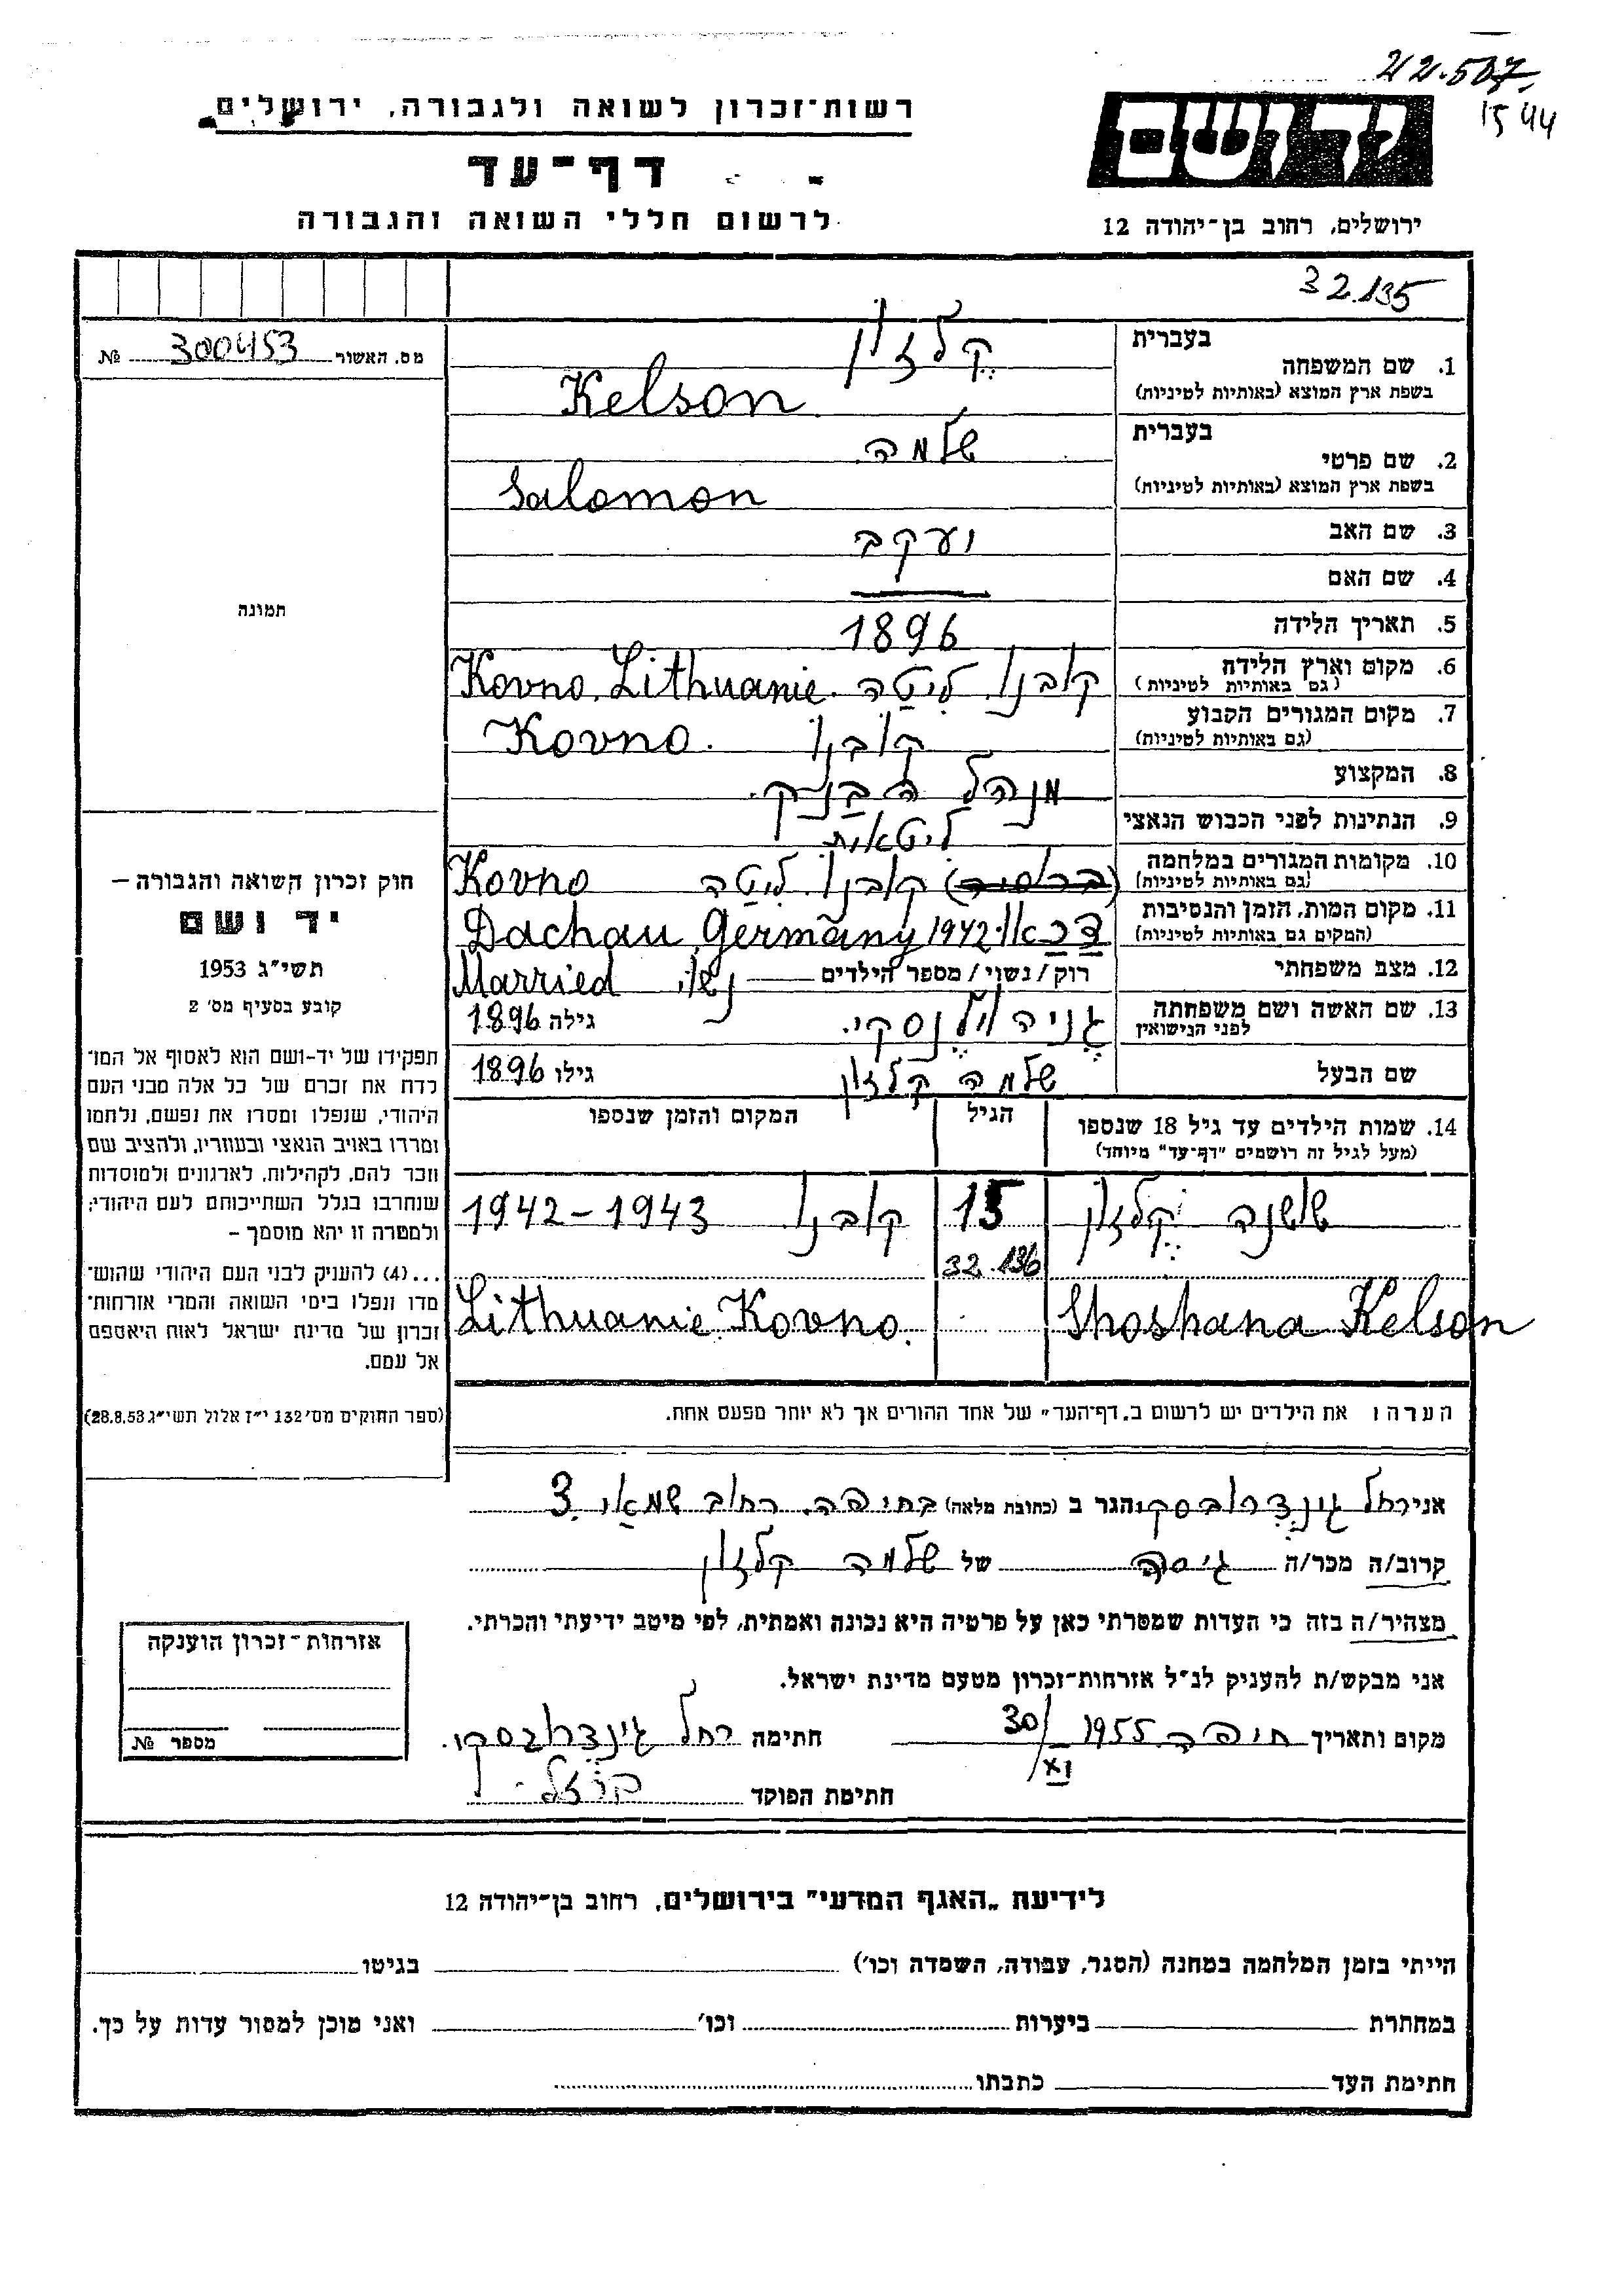 22.507
1544
רשות־זכרון לשואה ולגבורה, ירושלים
דף־עד
לרשום חללי השואה והגבורה
יד ושם
ירושלים, רחוב בן־יהודה 12
32.135
מס. האשור 300453 №
בעברית
1. שם המשפחה קלזון
בשפת ארץ המוצא (באותיות לטיניות) Kelson
בעברית
2. שם פרטי שלמה
בשפת ארץ המוצא (באותיות לטיניות) Salomon
3. שם האב יעקב
4. שם האם —
5. תאריך הלידה 1896
6. מקום וארץ הלידה קובנו. ליטה. Kovno. Lithuanie
(גם באותיות לטיניות)
7. מקום המגורים הקבוע קובנו Kovno.
(גם באותיות לטיניות)
8. המקצוע מנהל הבנק.
9. הנתינות לפני הכבוש הנאצי ליטאית
10. מקומות המגורים במלחמה קובנו. ליטה Kovno
(גם באותיות לטיניות)
11. מקום המות, הזמן והנסיבות דכאו 1942 Dachau, Germany
(המקום גם באותיות לטיניות)
12. מצב משפחתי רוק/נשוי/מספר הילדים — נשוי Married
13. שם האשה ושם משפחתה גניה וילנסקי. גילה 1896
לפני הנישואין
שם הבעל שלמה קלזון גילו 1896
14. שמות הילדים עד גיל 18 שנספו הגיל המקום והזמן שנספו
(מעל לגיל זה רושמים "דף־עד" מיוחד)
שושנה קלזון 15 קובנו 1942-1943
32.136
Shoshana Kelson Lithuanie Kovno.
הערה: את הילדים יש לרשום ב„דף־העד" של אחד ההורים אך לא יותר מפעם אחת.
תמונה
חוק זכרון השואה והגבורה —
יד ושם
תשי"ג 1953
קובע בסעיף מס' 2
תפקידו של יד-ושם הוא לאסוף אל המו־
לדת את זכרם של כל אלה מבני העם
היהודי, שנפלו ומסרו את נפשם, נלחמו
ומרדו באויב הנאצי ובעוזריו, ולהציב שם
וזכר להם, לקהילות, לארגונים ולמוסדות
שנחרבו בגלל השתייכותם לעם היהודי;
ולמטרה זו יהא מוסמך —
...(4) להעניק לבני העם היהודי שהוש־
מדו ונפלו בימי השואה והמרי אזרחות־
זכרון של מדינת ישראל לאות היאספם
אל עמם.
(ספר החוקים מס' 132 י"ז אלול תשי"ג 28.8.53)
אני רחל גינדרובסקי הגר ב (כתובת מלאה) בחיפה. רחוב שמאי 3
קרוב/ה מכר/ה גיסה של שלמה קלזון
מצהיר/ה בזה כי העדות שמסרתי כאן על פרטיה היא נכונה ואמתית, לפי מיטב ידיעתי והכרתי.
אני מבקש/ת להעניק לנ"ל אזרחות־זכרון מטעם מדינת ישראל.
מקום ותאריך חיפה 1955 30/XI חתימה רחל גינדרובסקי.
חתימת הפוקד
אזרחות־זכרון הוענקה
מספר №
לידיעת „האגף המדעי" בירושלים, רחוב בן־יהודה 12
הייתי בזמן המלחמה במחנה (הסגר, עבודה, השמדה וכו') בגיטו
במחתרת ביערות וכו' ואני מוכן למסור עדות על כך.
חתימת העד כתבתו